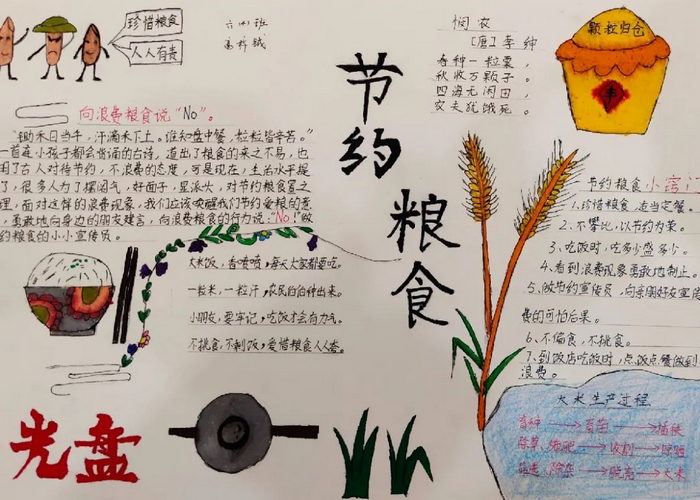 珍惜粮食
人人有责
六(4)班
向浪费粮食说"No"。
"锄禾日当午,汗滴禾下土。谁知盘中餐,粒粒皆辛苦。"
一首连小孩子都会背诵的古诗,道出了粮食的来之不易,也
用了古人对待节约,不浪费的态度,可是现在,生活水平提
了,很多人为了摆阔气,好面子,显派大,对节约粮食置之
理,面对这样的浪费现象,我们应该唤醒我们节约爱粮的意
,勇敢地向身边的朋友建言,向浪费粮食的行为说:"No!"做
约粮食的小小宣传员。
大米饭,香喷喷,每天大家都要吃。
一粒米,一粒汗,农民伯伯种出来。
小朋友,要牢记,吃饭才会有力气。
不挑食,不剩饭,爱惜粮食人人夸。
光盘
节约
粮食
悯农
[唐]李绅
春种一粒粟,
秋收万颗子。
四海无闲田,
农夫犹饿死。
颗粒归仓
丰
节约粮食小窍门
1、珍惜粮食,适当定餐。
2、不攀比,以节约为荣。
3、吃饭时,吃多少盛多少。
4、看到浪费现象勇敢地制止。
5、做节约宣传员,向亲朋好友宣传
费的可怕后果。
6、不偏食,不挑食。
7、到饭店吃饭时,点饭点餐做到
浪费。
大米生产过程
育种 育苗 插秧
除草、施肥 收割 晾晒
筛选、除杂 脱壳 大米